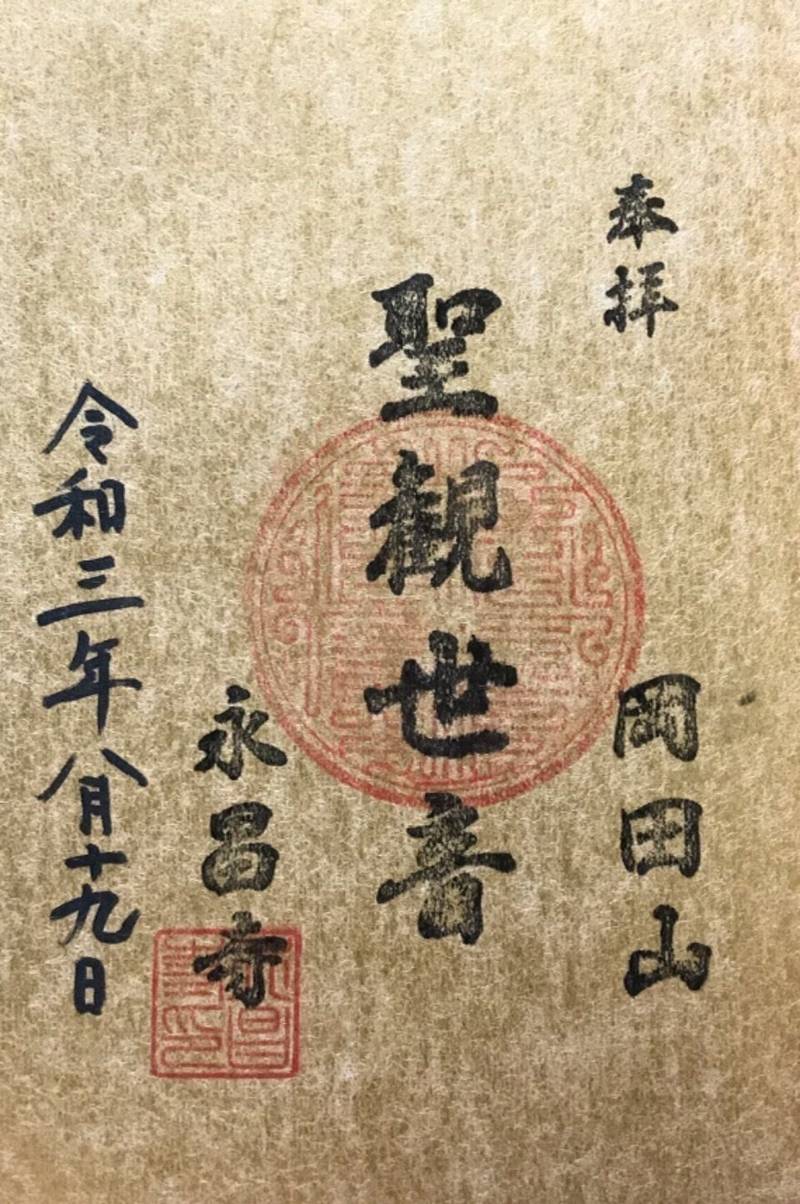 奉拝
岡田山
聖観世音
永昌寺
令和三年八月十九日